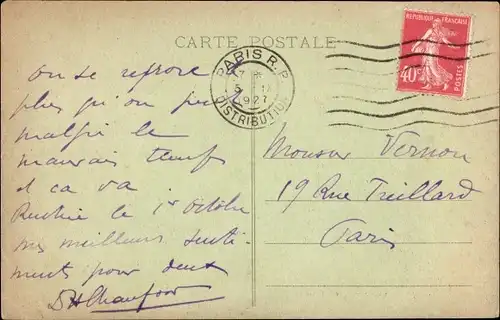 CARTE POSTALE
PARIS R.P.
1927
DISTRIBUTION
REPUBLIQUE FRANÇAISE
40c
POSTES
on se repose
plus qu'on peut
malgré le
mauvais temps
et ça va.
le 1er Octobre
mes meilleurs senti
ments pour deux
Monsieur Vernon
19 Rue
Paris